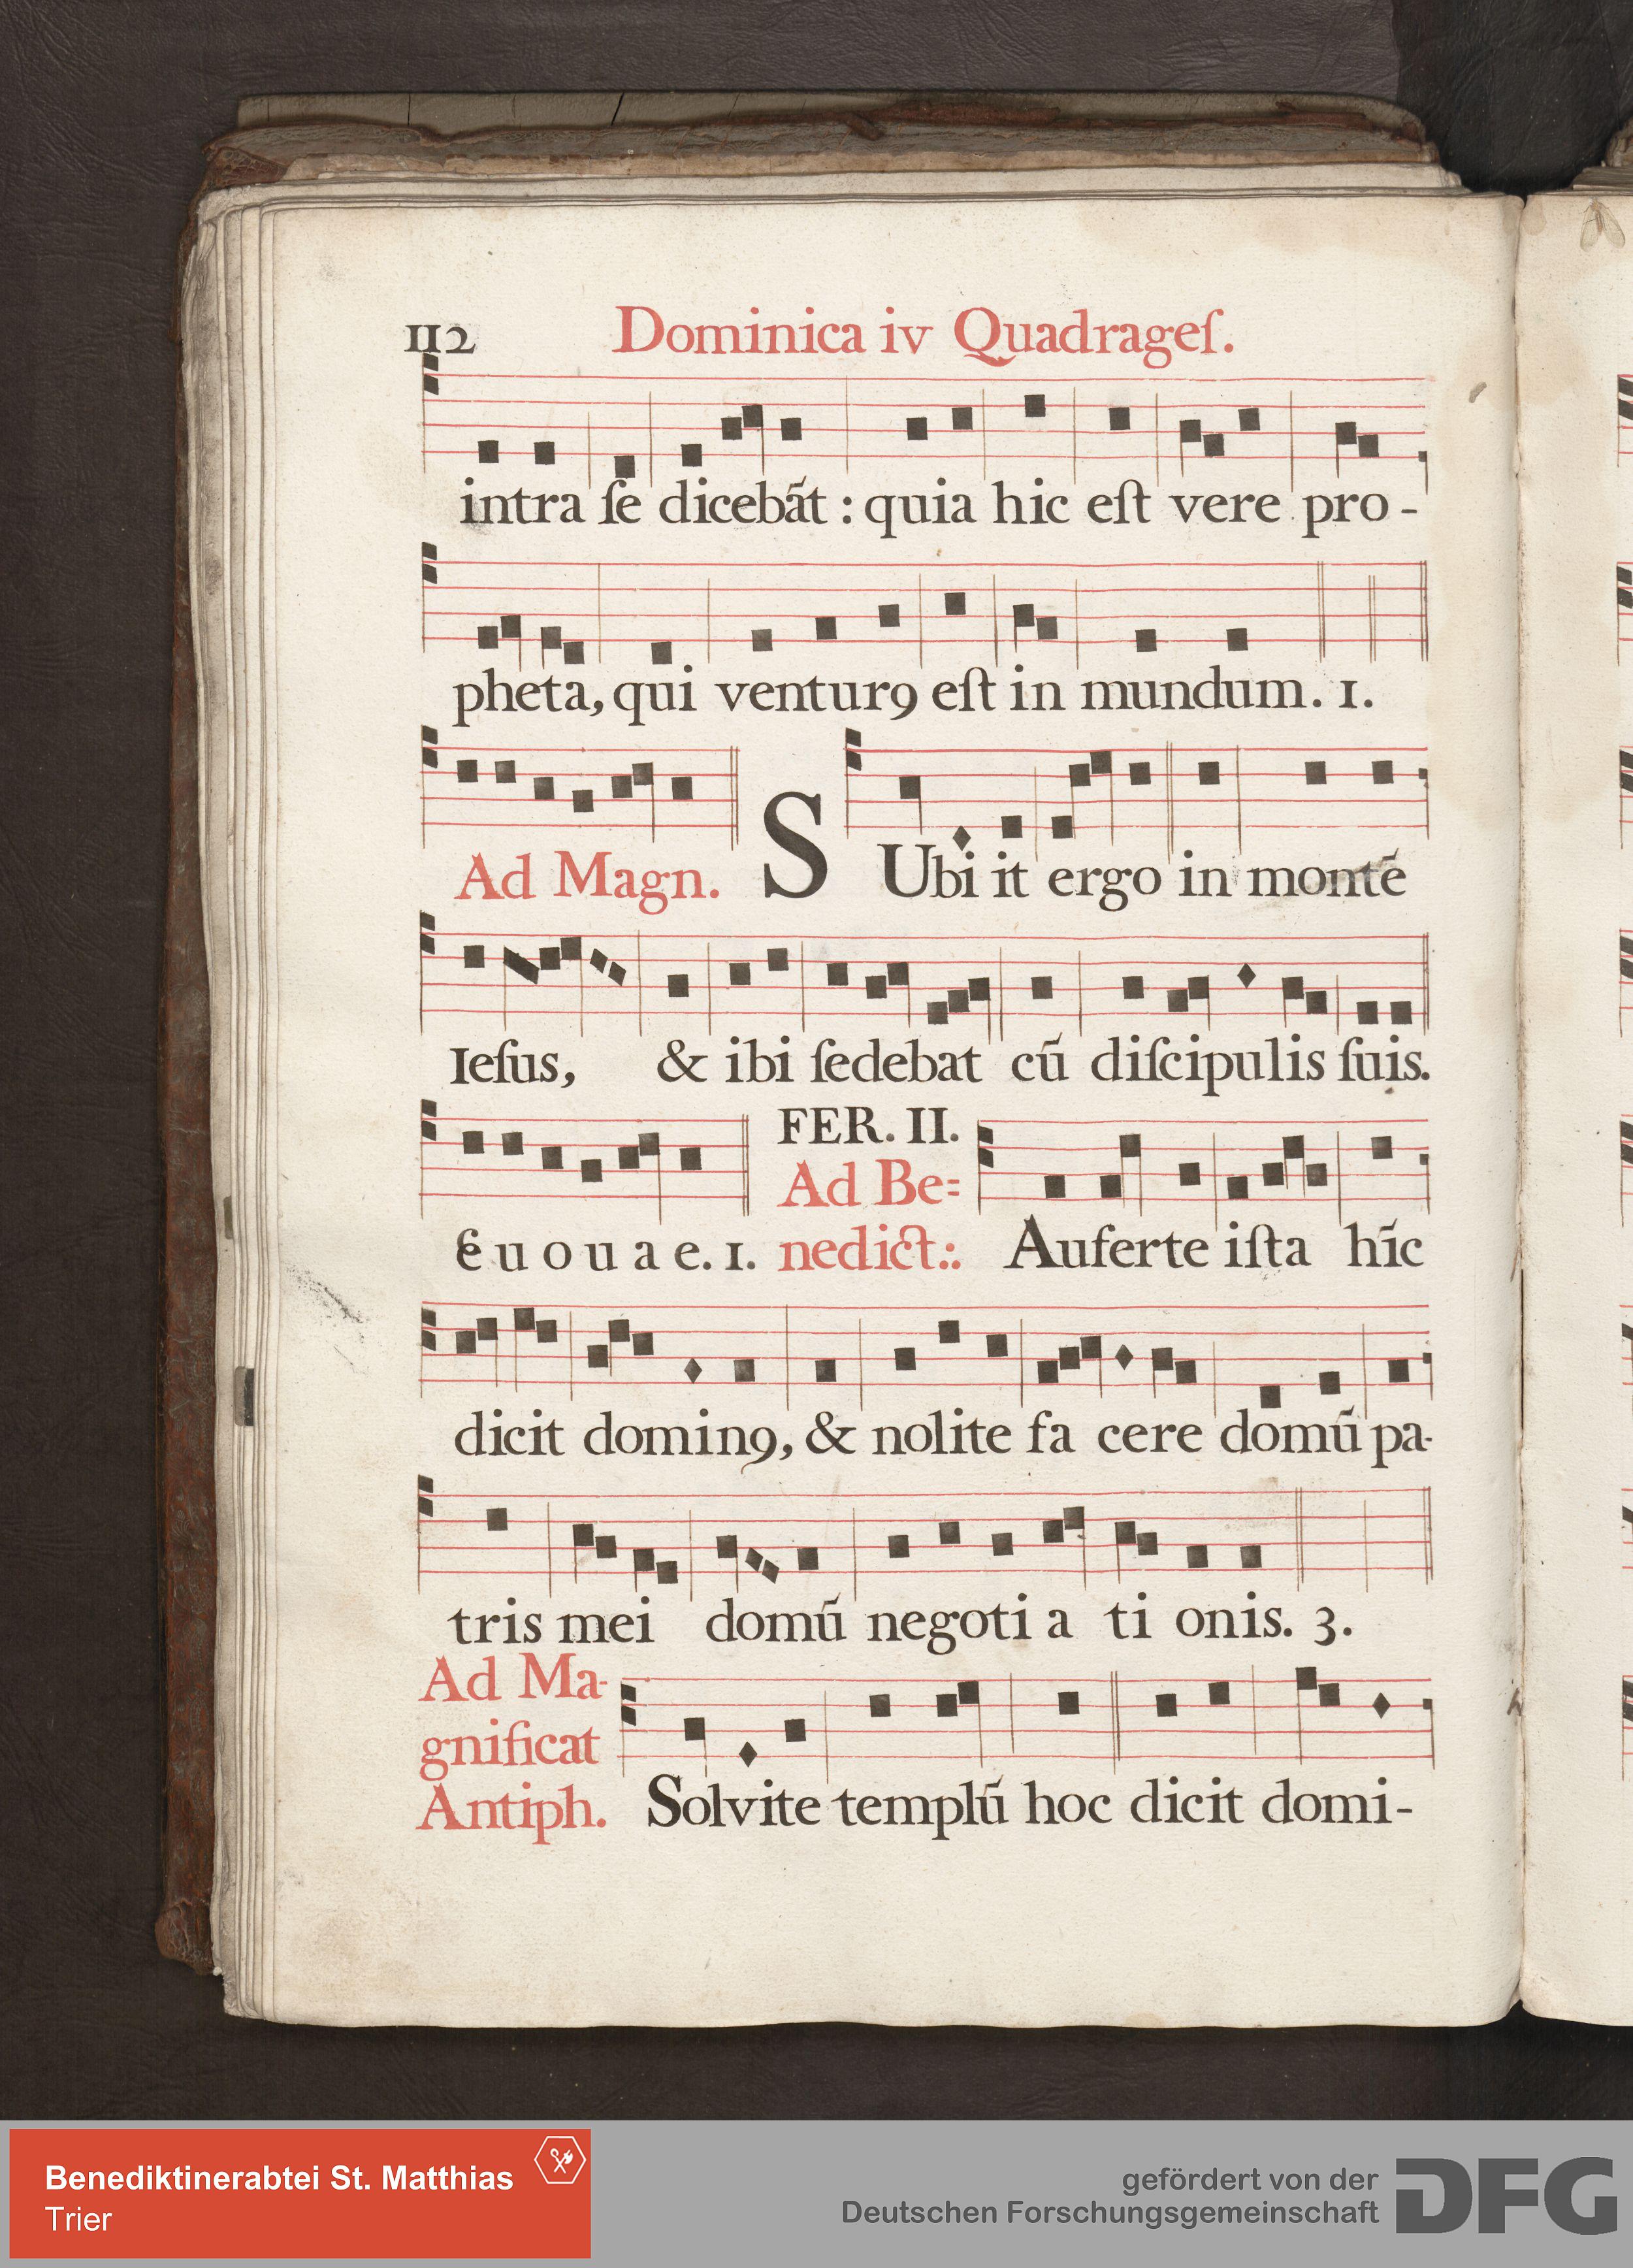 112 Dominica iv Quadrageſ.
intra ſe dicebāt : quia hic eſt vere pro-
pheta, qui venturꝯ eſt in mundum. 1.
Ad Magn. SUbi it ergo in montē
Ieſus, & ibi ſedebat cū diſcipulis ſuis.
FER. II.
Ad Be=
e u o u a e. 1. nedict:. Auferte iſta hīc
dicit dominꝯ, & nolite fa cere domū pa-
tris mei domū negoti a ti onis. 3.
Ad Ma-
gnificat
Antiph. Solvite templū hoc dicit domi-
Benediktinerabtei St. Matthias
Trier
gefördert von der
Deutschen Forschungsgemeinschaft
DFG